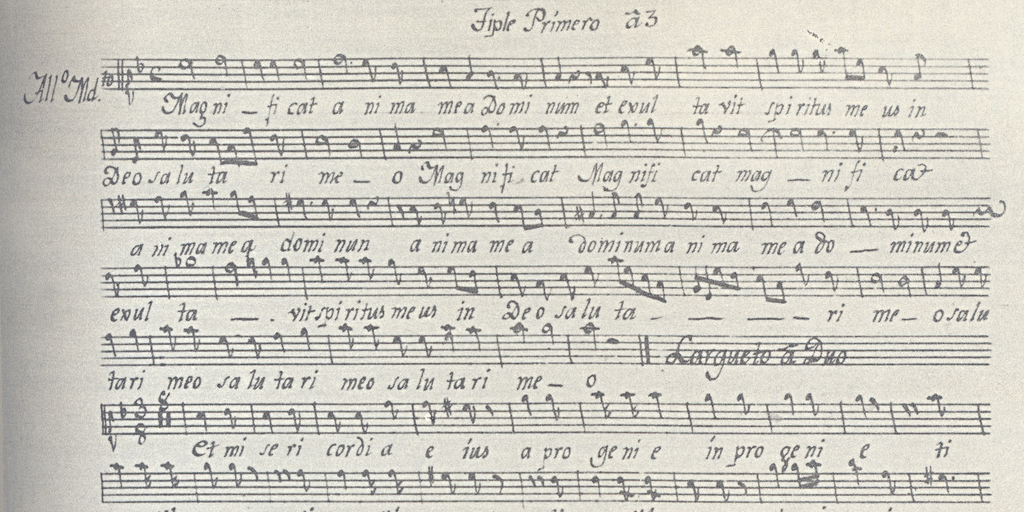 Tiple Primero â3
All.º Md.to
Magni_ficat anima mea Dominum et exulta vit spiritus meus in
Deo saluta ri me_o Magnificat Magnificat mag_nificat
anima mea dominun anima mea dominum anima mea do_minum et
exul ta_. vit spiritus meus in Deo saluta_ _ _ ri me_o salu
tari meo salutari meo salutari me_o Largueto â Duo
Et misericordia eius a progenie in progenie ti